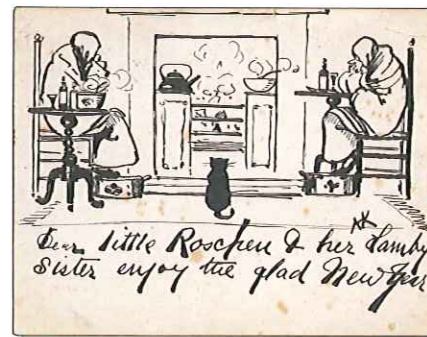 Dear little Roschen & her Lamby
Sister enjoy the glad New Year